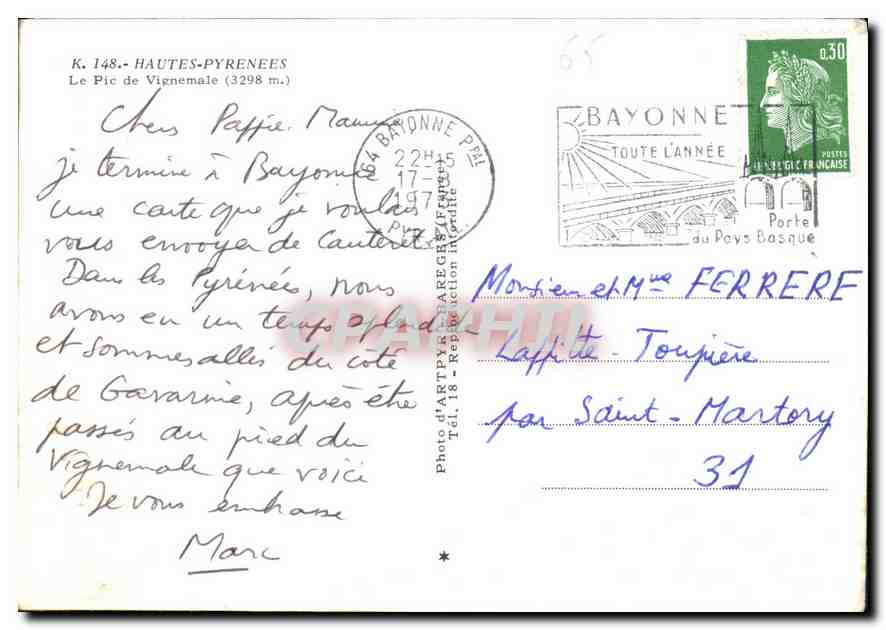 K. 148.- HAUTES-PYRENEES
Le Pic de Vignemale (3298 m.)
Chers Pappie. Mamie
je termine à Bayonne
une carte que je voulais
vous envoyer de Cauteret
Dans les Pyrénées, nous
avons eu un temps splendide
et sommes allés du côté
de Gavarnie, après être
passés au pied du
Vignemale que voici
Je vous embrasse
Marc
64 BAYONNE Ppal
22H 15
17-
197
Photo d'ARTPYR - BAREGES (France)
Tél. 18 - Reproduction interdite
*
65
BAYONNE
TOUTE L'ANNÉE
Porte
du Pays Basque
0,30
POSTES
REPUBLIQUE FRANÇAISE
Monsieur et Mme FERRERE
Laffitte-Toupière
par Saint-Martory
31
CPARAMA